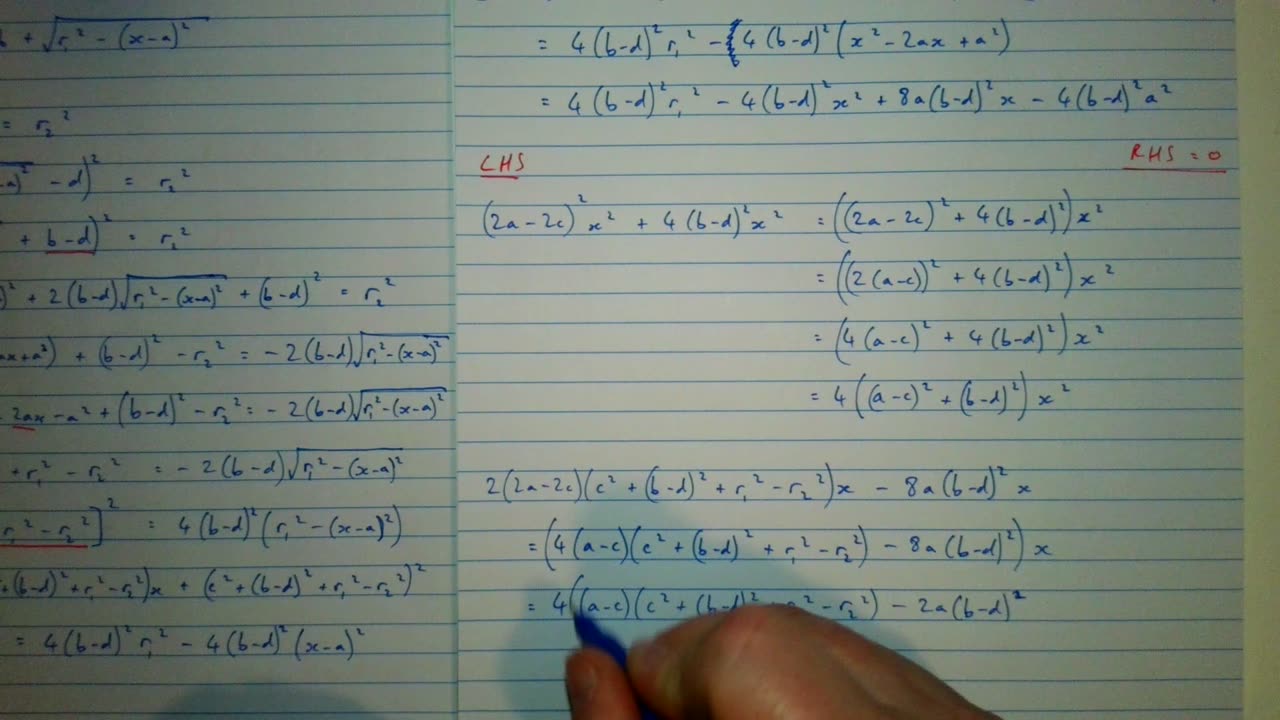 b + √(r₁² − (x−a)²)
= r₂²
−a)² − d)² = r₂²
+ b−d)² = r₂²
)² + 2(b−d)√(r₁² − (x−a)²) + (b−d)² = r₂²
ax+a²) + (b−d)² − r₂² = −2(b−d)√(r₁² − (x−a)²)
2ax − a² + (b−d)² − r₂² = −2(b−d)√(r₁² − (x−a)²)
+ r₁² − r₂² = −2(b−d)√(r₁² − (x−a)²)
r₁² − r₂²]² = 4(b−d)²(r₁² − (x−a)²)
+(b−d)² + r₁² − r₂²)x + (c² + (b−d)² + r₁² − r₂²)²
= 4(b−d)² r₁² − 4(b−d)² (x−a)²
= 4(b−d)² r₁² − 4(b−d)²(x² − 2ax + a²)
= 4(b−d)² r₁² − 4(b−d)² x² + 8a(b−d)² x − 4(b−d)² a²
LHS RHS = 0
(2a−2c)² x² + 4(b−d)² x² = ((2a−2c)² + 4(b−d)²) x²
= ((2(a−c))² + 4(b−d)²) x²
= (4(a−c)² + 4(b−d)²) x²
= 4((a−c)² + (b−d)²) x²
2(2a−2c)(c² + (b−d)² + r₁² − r₂²)x − 8a(b−d)² x
= (4(a−c)(c² + (b−d)² + r₁² − r₂²) − 8a(b−d)²) x
= 4((a−c)(c² + (b−d)² − r₂²) − 2a(b−d)²